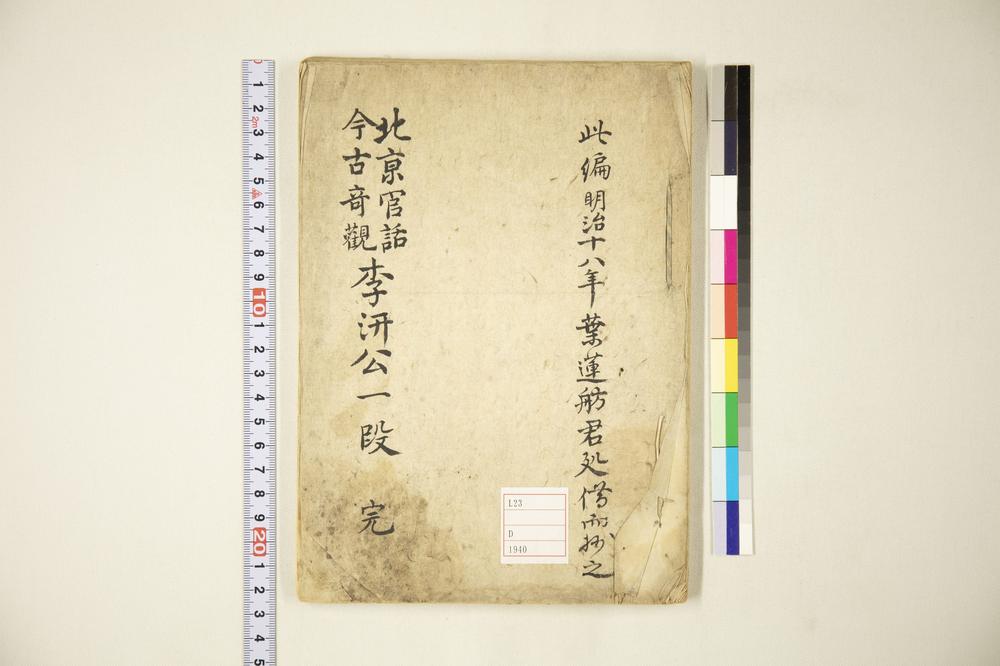 此編明治十八年葉蓮舫君処借而抄之
北亰官話
今古奇觀
李汧公一段 完
L23
D
1940
0
1
2
2m
3
4
5
6
7
8
9
10
1
2
3
4
5
6
7
8
9
20
1
2
3
4
5